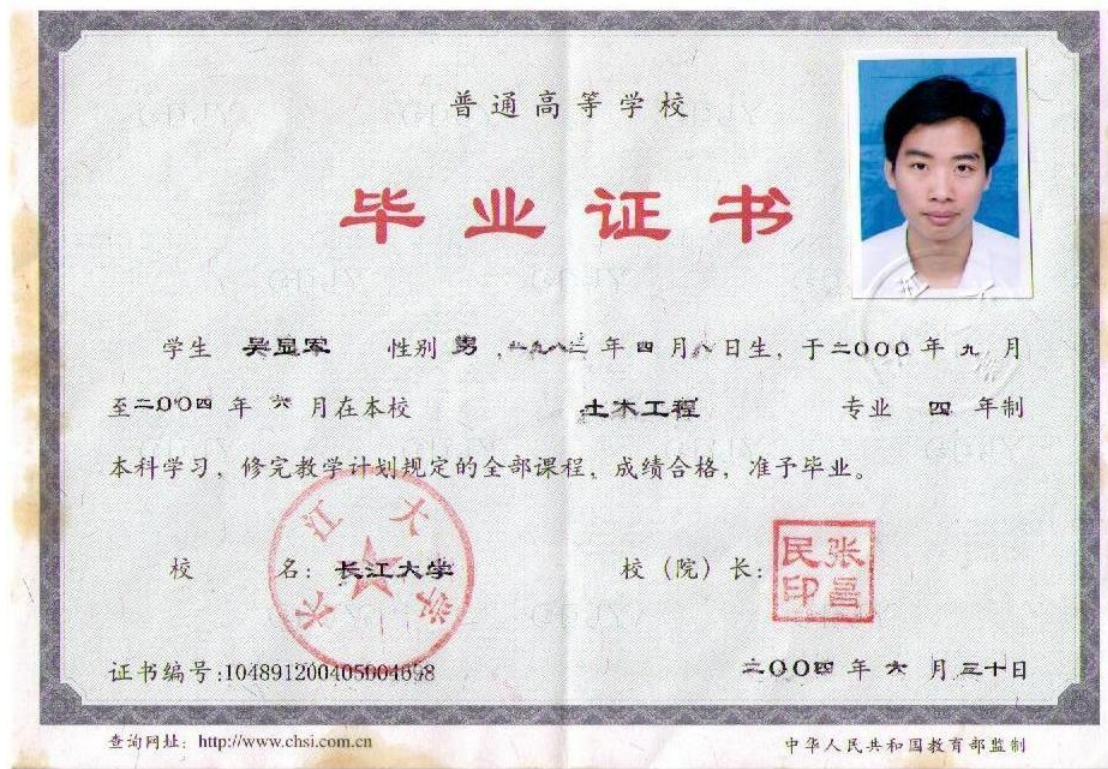 普通高等学校
毕业证书
学生 吴显军 性别 男，一九八三年四月八日生，于二〇〇〇年九月
至二〇〇四年六月在本校 土木工程 专业 四年制
本科学习，修完教学计划规定的全部课程，成绩合格，准予毕业。
校 名：长江大学 校（院）长：
长江大学
张昌民印
证书编号:104891200405004698 二〇〇四年六月三十日
查询网址：http://www.chsi.com.cn 中华人民共和国教育部监制